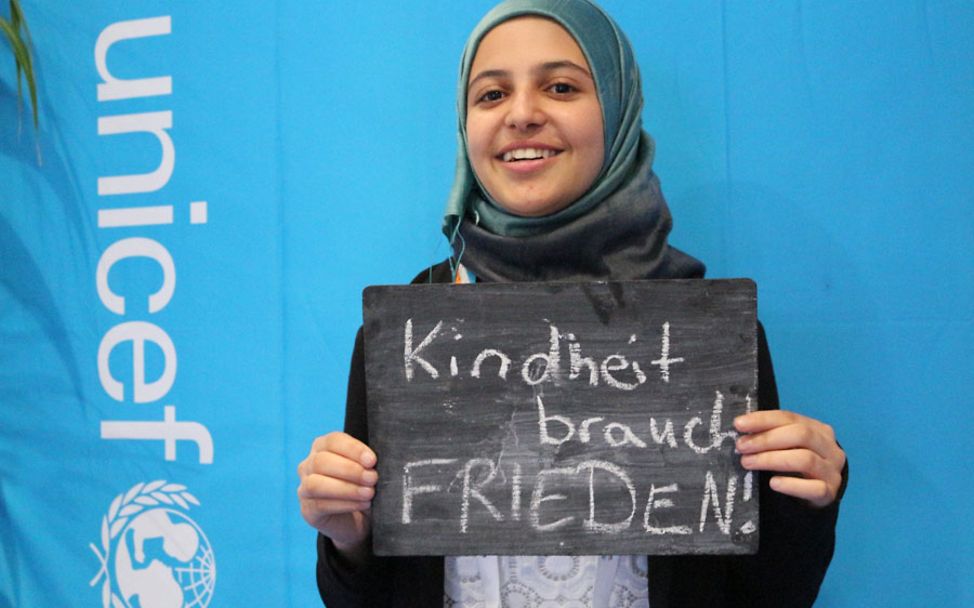 unicef
Kindheit
braucht
FRIEDEN!